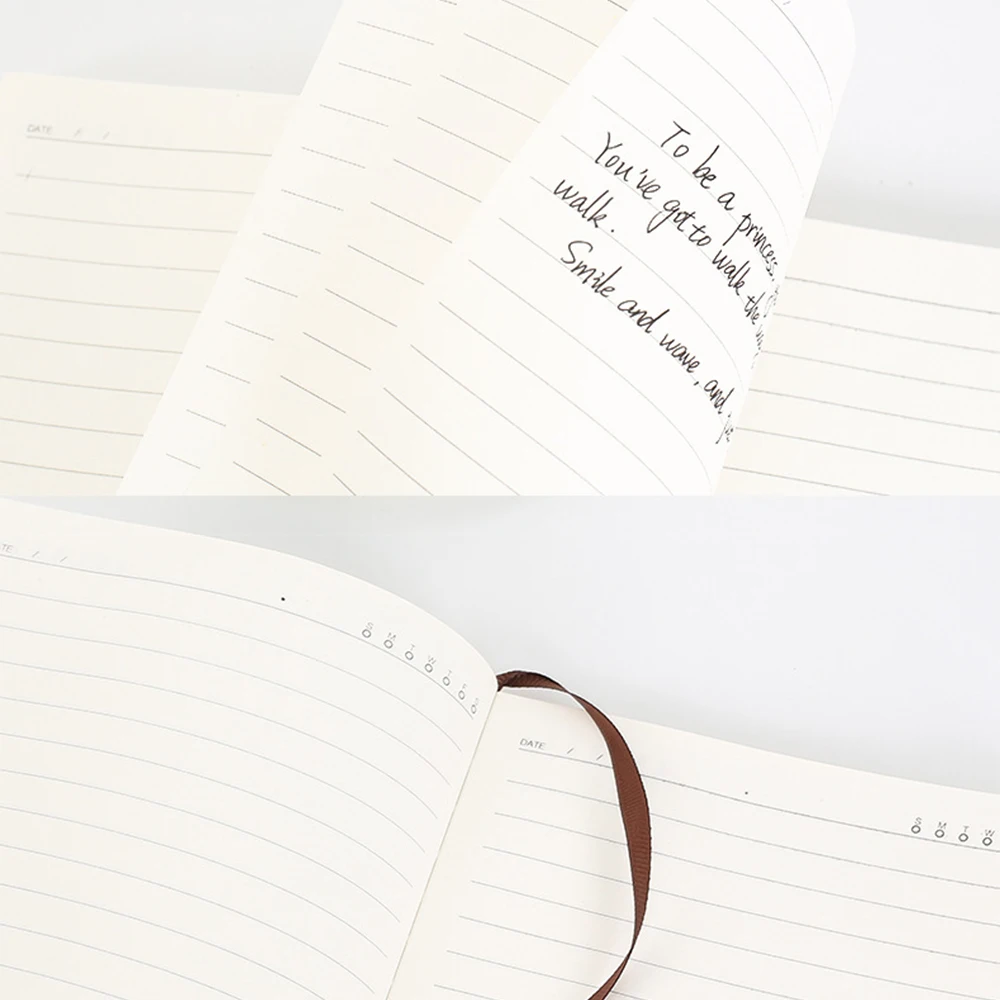 DATE / /
To be a princess,
You've got to walk the
walk.
Smile and wave, and
TE / /
S M T W T F S
DATE / /
S M T W